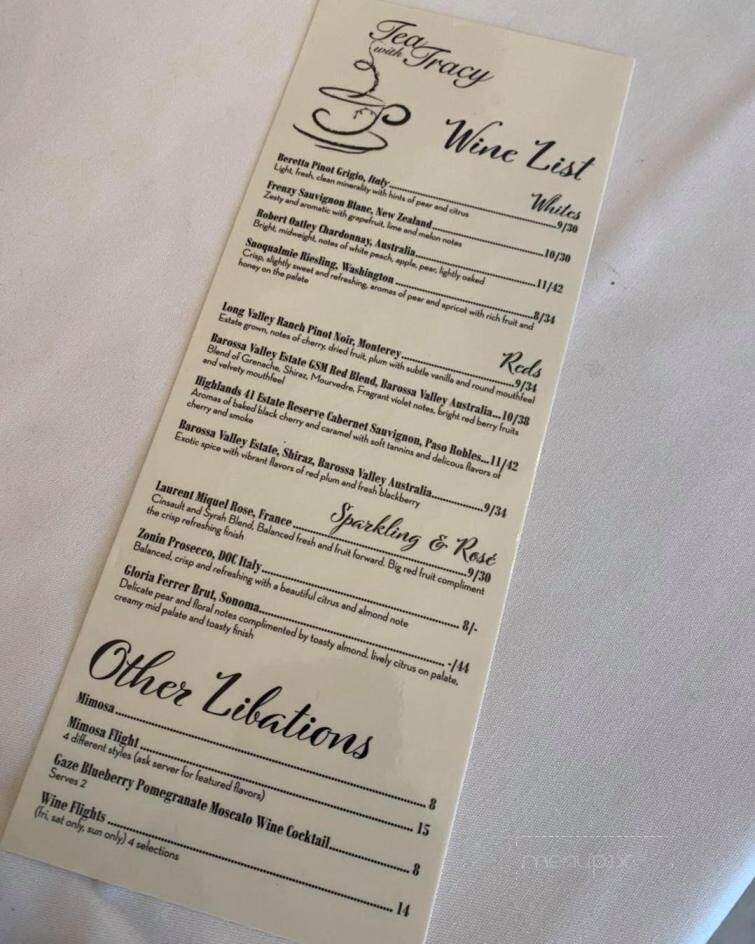 Tea
with
Tracy
Wine List
Whites
Beretta Pinot Grigio, Italy..........9/30
Light, fresh, clean minerality with hints of pear and citrus
Frenzy Sauvignon Blanc, New Zealand..........10/30
Zesty and aromatic with grapefruit, lime and melon notes
Robert Oatley Chardonnay, Australia..........11/42
Bright, midweight, notes of white peach, apple, pear, lightly oaked
Snoqualmie Riesling, Washington..........8/34
Crisp, slightly sweet and refreshing, aromas of pear and apricot with rich fruit and
honey on the palate
Reds
Long Valley Ranch Pinot Noir, Monterey..........9/34
Estate grown, notes of cherry, dried fruit, plum with subtle vanilla and round mouthfeel
Barossa Valley Estate GSM Red Blend, Barossa Valley Australia...10/38
Blend of Grenache, Shiraz, Mourvedre. Fragrant violet notes, bright red berry fruits
and velvety mouthfeel
Highlands 41 Estate Reserve Cabernet Sauvignon, Paso Robles...11/42
Aromas of baked black cherry and caramel with soft tannins and delicous flavors of
cherry and smoke
Barossa Valley Estate, Shiraz, Barossa Valley Australia..........9/34
Exotic spice with vibrant flavors of red plum and fresh blackberry
Sparkling & Rosé
Laurent Miquel Rose, France..........9/30
Cinsault and Syrah Blend. Balanced fresh and fruit forward. Big red fruit compliment
the crisp refreshing finish
Zonin Prosecco, DOC Italy..........8/-
Balanced, crisp and refreshing with a beautiful citrus and almond note
Gloria Ferrer Brut, Sonoma..........-/44
Delicate pear and floral notes complimented by toasty almond. lively citrus on palate,
creamy mid palate and toasty finish
Other Libations
Mimosa..........8
Mimosa Flight..........15
4 different styles (ask server for featured flavors)
Gaze Blueberry Pomegranate Moscato Wine Cocktail..........8
Serves 2
Wine Flights..........14
(fri, sat only, sun only) 4 selections
menupix